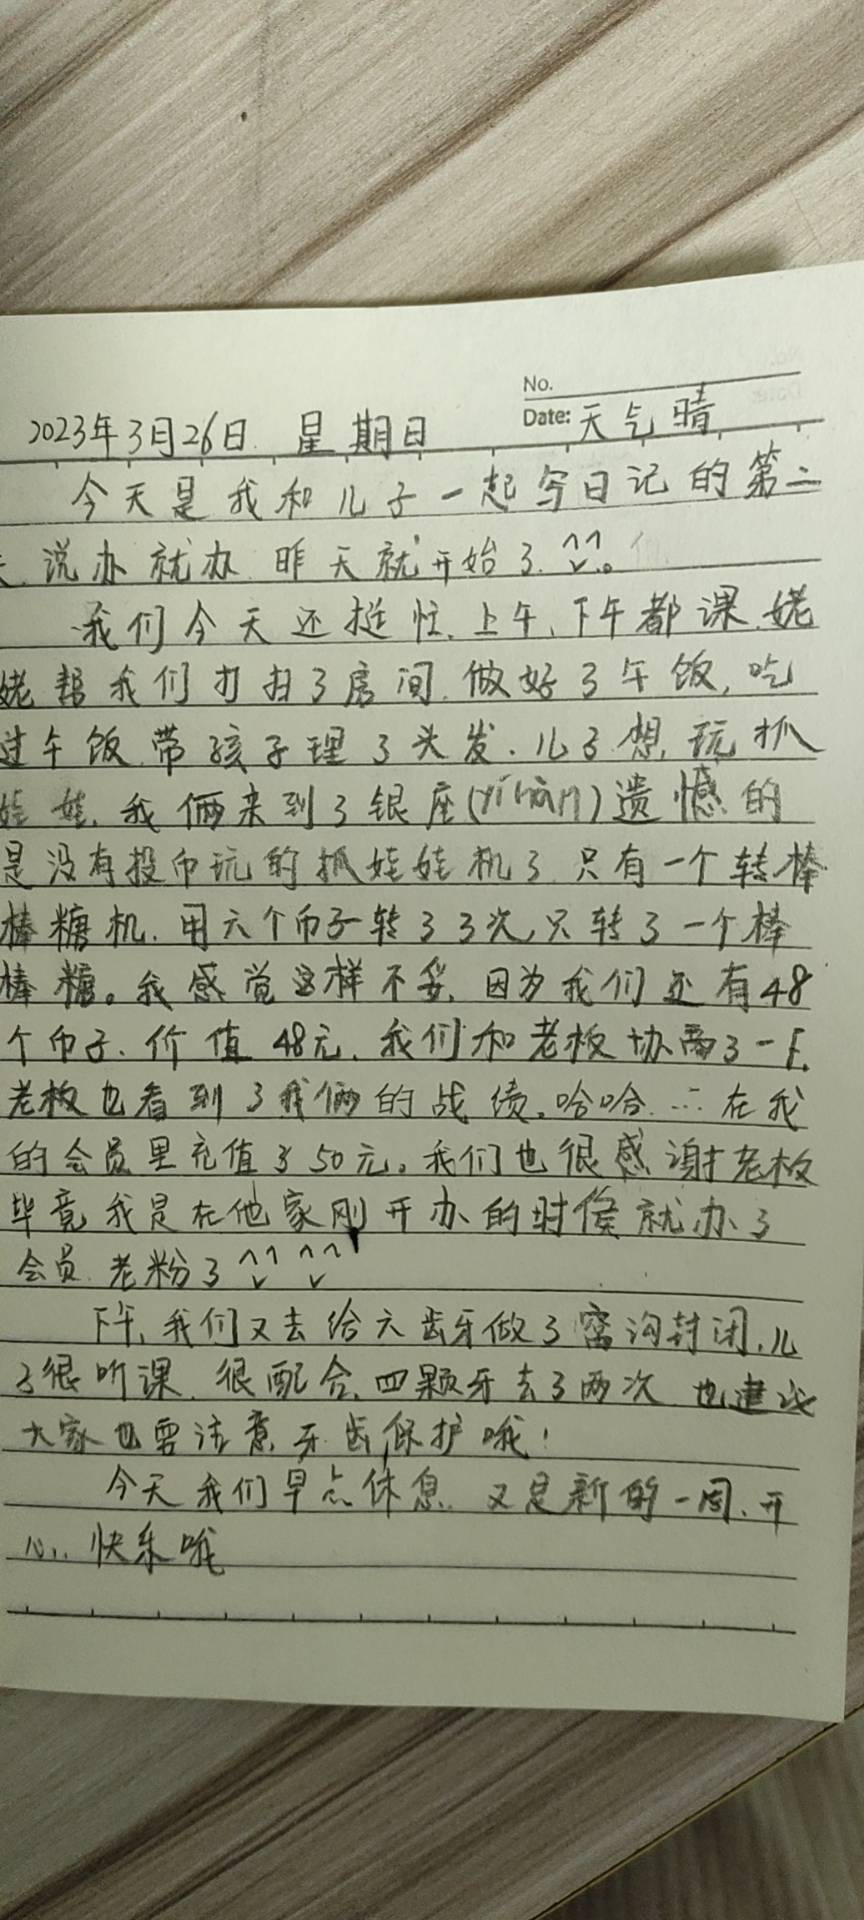 No.
2023年3月26日 星期日 Date: 天气晴
今天是我和儿子一起写日记的第二
天,说办就办,昨天就开始了.
我们今天还挺忙,上午、下午都课,姥
姥帮我们打扫了房间,做好了午饭,吃
过午饭,带孩子理了头发.儿子想玩抓
娃娃,我俩来到了银座(yínzuò)遗憾的
是没有投币玩的抓娃娃机了,只有一个转棒
棒糖机.用六个币子转了3次,只转了一个棒
棒糖。我感觉这样不妥,因为我们还有48
个币子.价值48元,我们和老板协商了一下.
老板也看到了我俩的战绩,哈哈...在我
的会员里充值了50元。我们也很感谢老板
毕竟我是在他家刚开办的时候就办了
会员,老粉了
下午,我们又去给六齿牙做了窝沟封闭,儿
子很听课,很配合,四颗牙去了两次,也建议
大家也要注意牙齿保护哦!
今天我们早点休息,又是新的一周,开
心,快乐哦